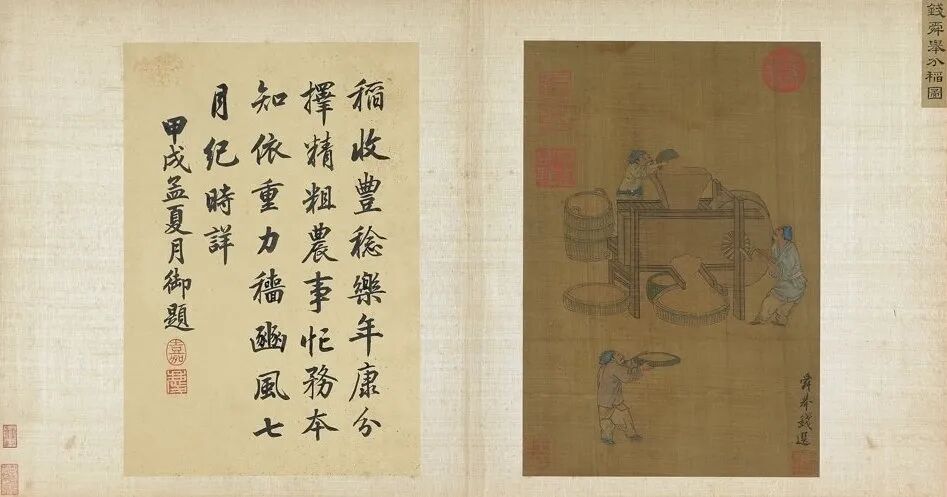 錢舜舉分稻圖
舜舉錢選
稻收豊稔樂年康分
擇精粗農事忙務本
知依重力穡豳風七
月紀時詳
甲戌孟夏月御題